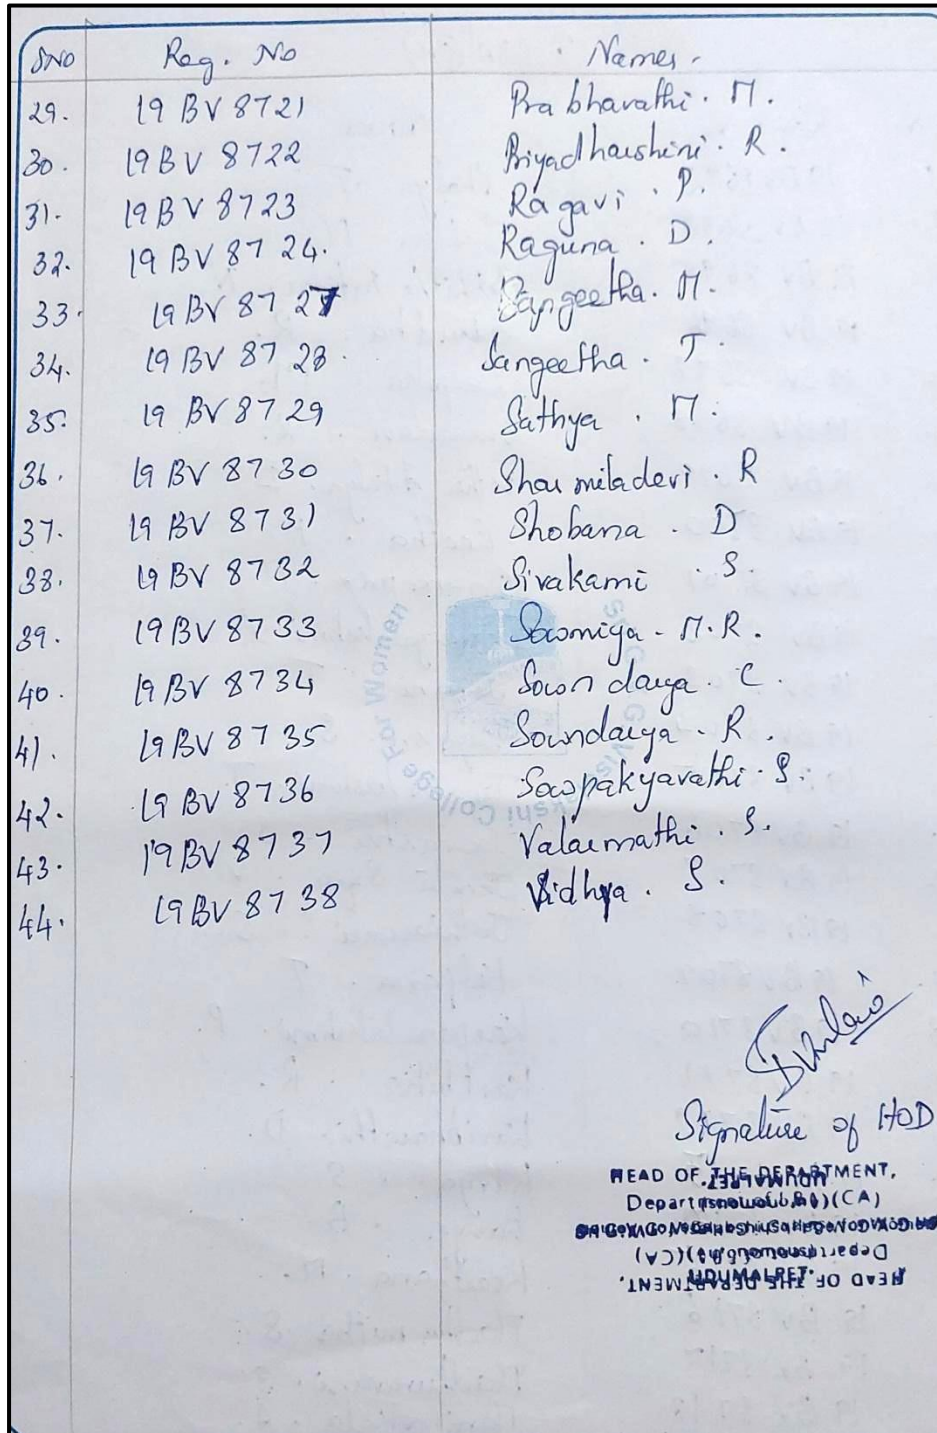 SNO Reg. No Names.
29. 19 BV 8721 Prabhavathi. M.
30. 19 BV 8722 Priyadharshini. R.
31. 19 BV 8723 Ragavi. P.
32. 19 BV 8724. Raguna. D.
33. 19 BV 8727 Sangeetha. M.
34. 19 BV 8728. Sangeetha. T.
35. 19 BV 8729 Sathya. M.
36. 19 BV 8730 Sharmiladevi. R
37. 19 BV 8731 Shobana. D
38. 19 BV 8732 Sivakami. S.
39. 19 BV 8733 Sowmiya. M.R.
40. 19 BV 8734 Soundarya. C.
41. 19 BV 8735 Soundarya. R.
42. 19 BV 8736 Sowpakyavathi. S.
43. 19 BV 8737 Valarmathi. S.
44. 19 BV 8738 Vidhya. S.
College For Women
Signature of HOD
HEAD OF THE DEPARTMENT,
(CA)
UDUMALPET.